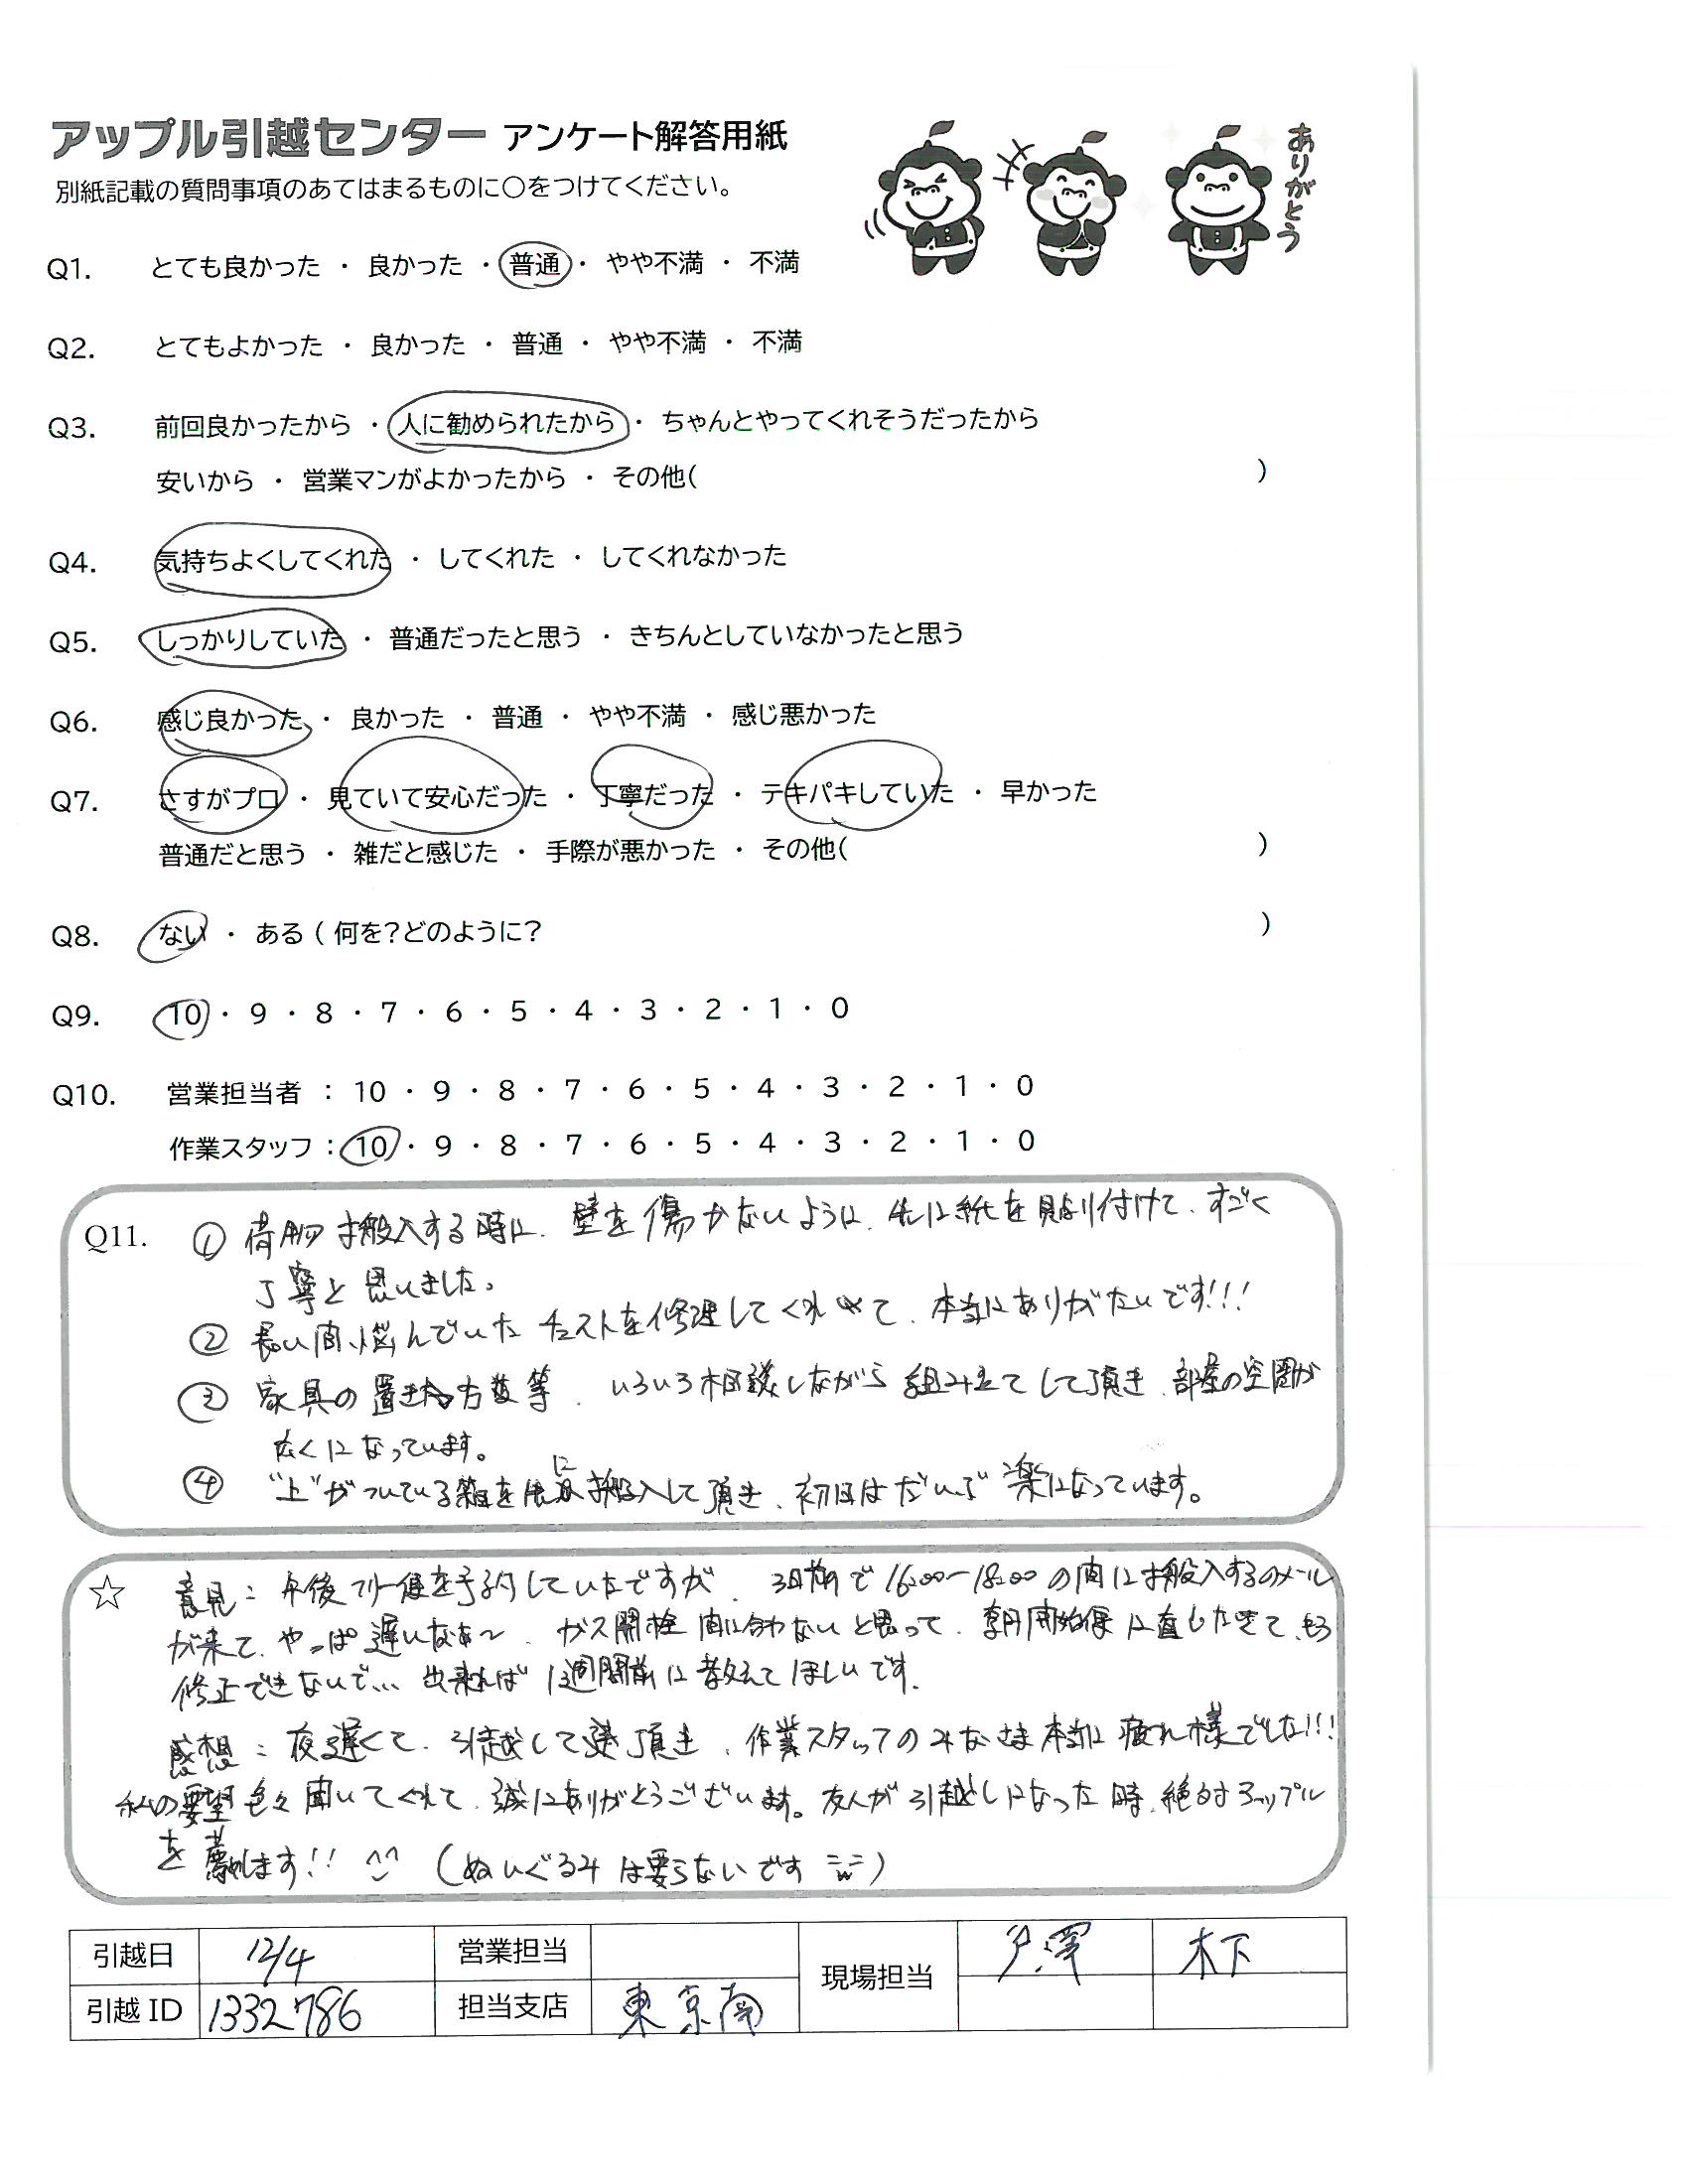 アップル引越センター アンケート解答用紙
別紙記載の質問事項のあてはまるものに○をつけてください。
ありがとう
Q1. とても良かった ・ 良かった ・ 普通 ・ やや不満 ・ 不満
Q2. とてもよかった ・ 良かった ・ 普通 ・ やや不満 ・ 不満
Q3. 前回良かったから ・ 人に勧められたから ・ ちゃんとやってくれそうだったから
安いから ・ 営業マンがよかったから ・ その他( )
Q4. 気持ちよくしてくれた ・ してくれた ・ してくれなかった
Q5. しっかりしていた ・ 普通だったと思う ・ きちんとしていなかったと思う
Q6. 感じ良かった ・ 良かった ・ 普通 ・ やや不満 ・ 感じ悪かった
Q7. さすがプロ ・ 見ていて安心だった ・ 丁寧だった ・ テキパキしていた ・ 早かった
普通だと思う ・ 雑だと感じた ・ 手際が悪かった ・ その他( )
Q8. ない ・ ある ( 何を?どのように? )
Q9. 10 ・ 9 ・ 8 ・ 7 ・ 6 ・ 5 ・ 4 ・ 3 ・ 2 ・ 1 ・ 0
Q10. 営業担当者 : 10 ・ 9 ・ 8 ・ 7 ・ 6 ・ 5 ・ 4 ・ 3 ・ 2 ・ 1 ・ 0
作業スタッフ : 10 ・ 9 ・ 8 ・ 7 ・ 6 ・ 5 ・ 4 ・ 3 ・ 2 ・ 1 ・ 0
Q11. ① 荷物搬入する時に、壁を傷かないように、先に紙を貼り付けて、すごく
丁寧と思いました。
② 長い間、悩んでいたチェストを修理してくれて、本当にありがたいです!!!
③ 家具の置き方等、いろいろ相談しながら組み立てして頂き、部屋の空間が
広くになっています。
④ "上"がついている箱を先に搬入して頂き、初日はだいぶ楽になっています。
☆ 意見: 午後フリー便を予約していたですが、3日前で16:00〜18:00の間に搬入するのメール
が来て、やっぱ遅いなあ〜、ガス開栓間に合わないと思って、朝開始便に直したくて、もう
修正できないで… 出来れば1週間前に教えてほしいです。
感想: 夜遅くて、引越して頂き、作業スタッフのみなさま本当に疲れ様でした!!!
私の要望色々聞いてくれて、誠にありがとうございます。友人が引越しになった時、絶対アップル
を薦めます!! ^^ (ぬいぐるみは要らないです =w=)
引越日 12/4 営業担当 現場担当 戸澤 木下
引越 ID 1332786 担当支店 東京南